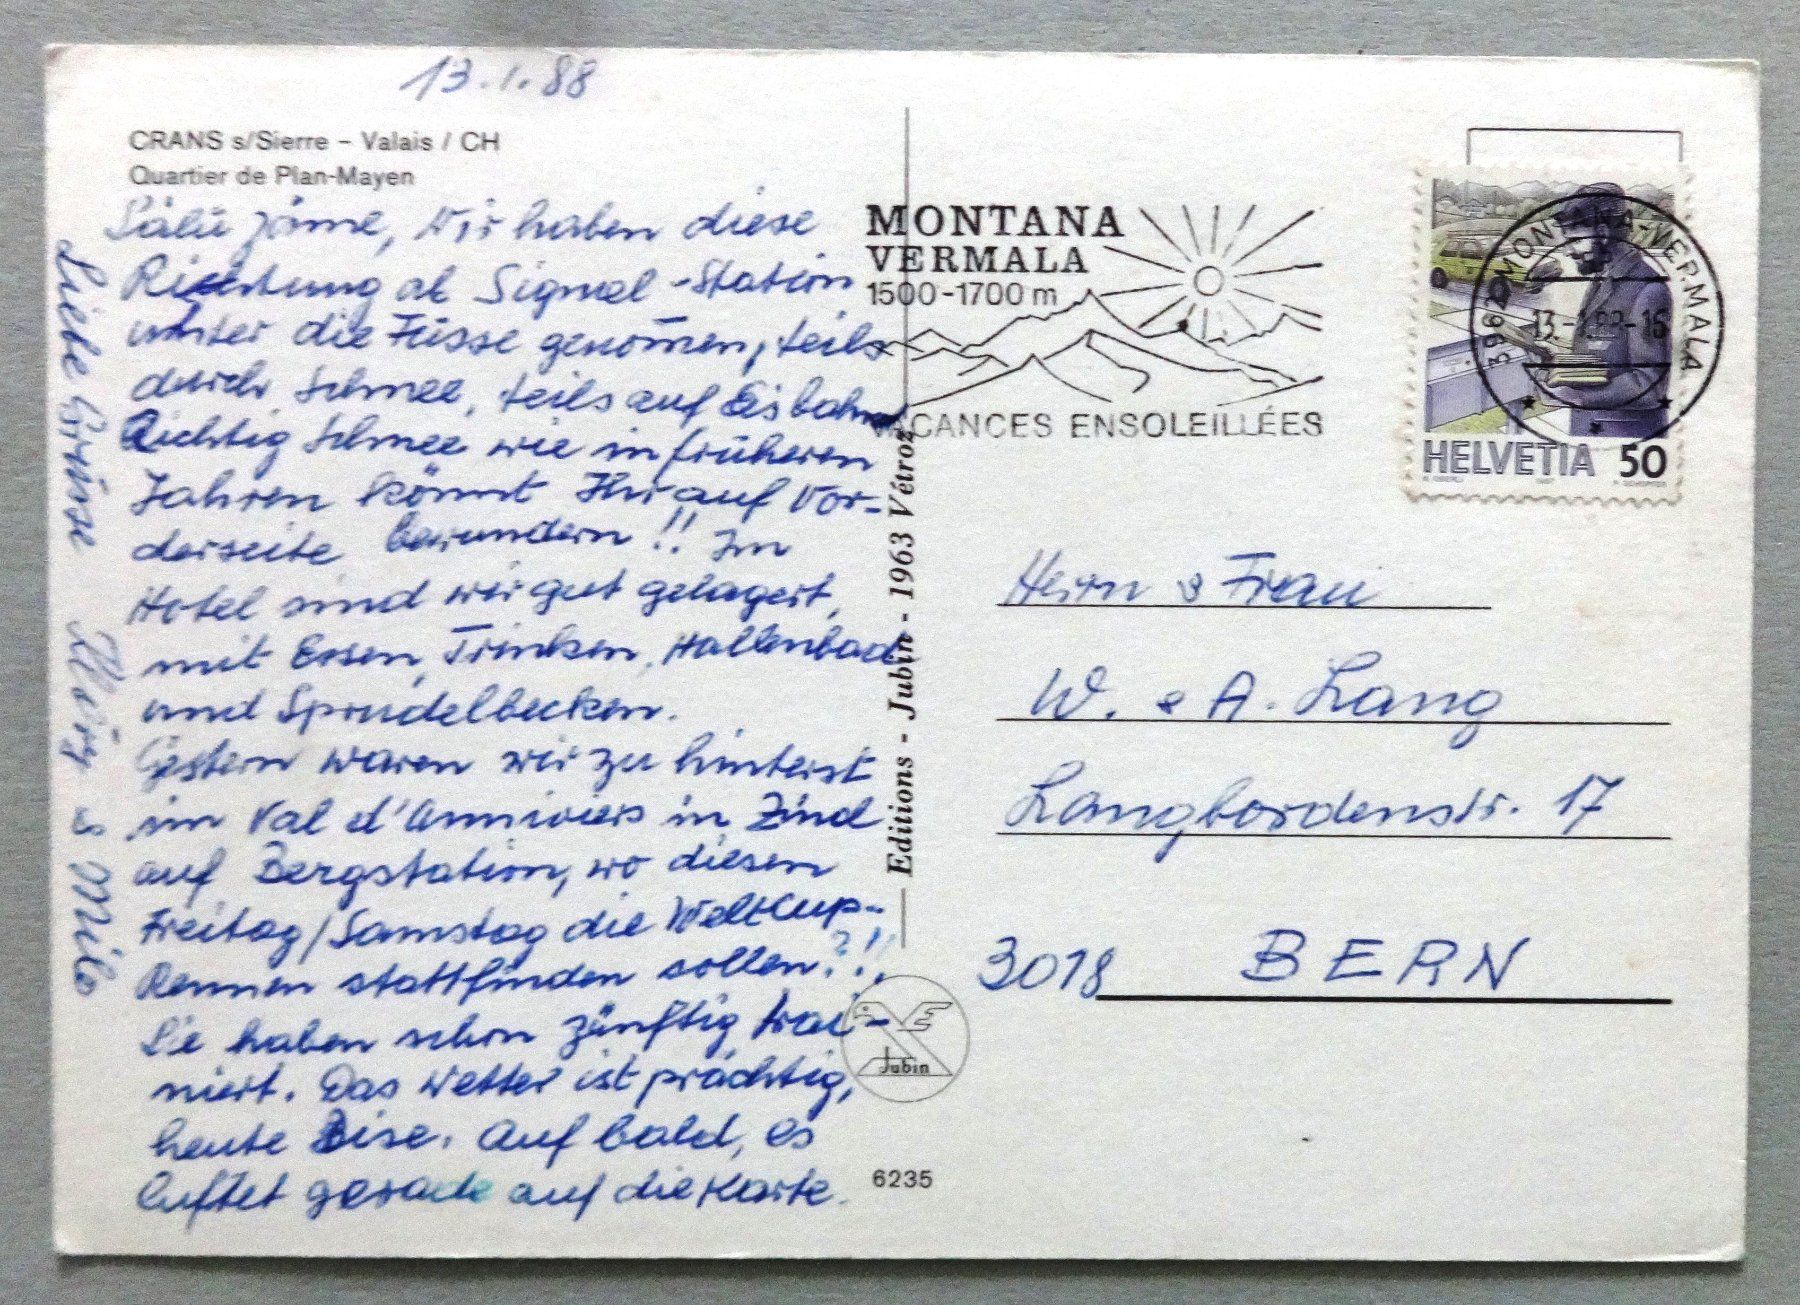 13.1.88
CRANS s/Sierre – Valais / CH
Quartier de Plan-Mayen
Sälü zäme, Wir haben diese
Richtung ab Signal-Station
unter die Füsse genom̄en, teils
durch Schnee, teils auf Eisbahn
Richtig Schnee wie in früheren
Jahren könnt Ihr auf Vor-
derseite bewundern!! Im
Hotel sind wir gut gelagert,
mit Essen, Trinken, Hallenbad
und Sprudelbecken.
Gestern waren wir zu hinterst
im Val d'Anniviers in Zinal
auf Bergstation, wo diesen
Freitag/Samstag die Weltcup-
Rennen stattfinden sollen?!!
Sie haben schon zünftig trai-
niert. Das Wetter ist prächtig,
heute Bise. Auf bald, es
luftet gerade auf die Karte.
Liebe Grüsse
& Milo
Editions - Jubin - 1963 Vétroz
Jubin
6235
MONTANA
VERMALA
1500-1700 m
VACANCES ENSOLEILLÉES
3962 MONTANA-VERMALA
13.-1.88-15
HELVETIA 50
Herrn & Frau
W. & A. Lang
Langbordenstr. 17
3018 BERN